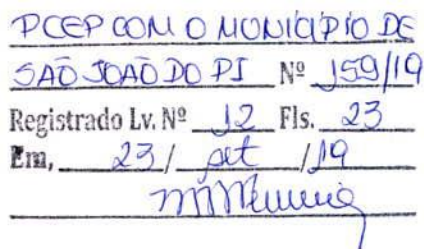 PCEP COM O MUNICÍPIO DE
SAÕ JOAÕ DO PI Nº 159/19
Registrado Lv. Nº 12 Fls. 23
Em, 23/ set /19